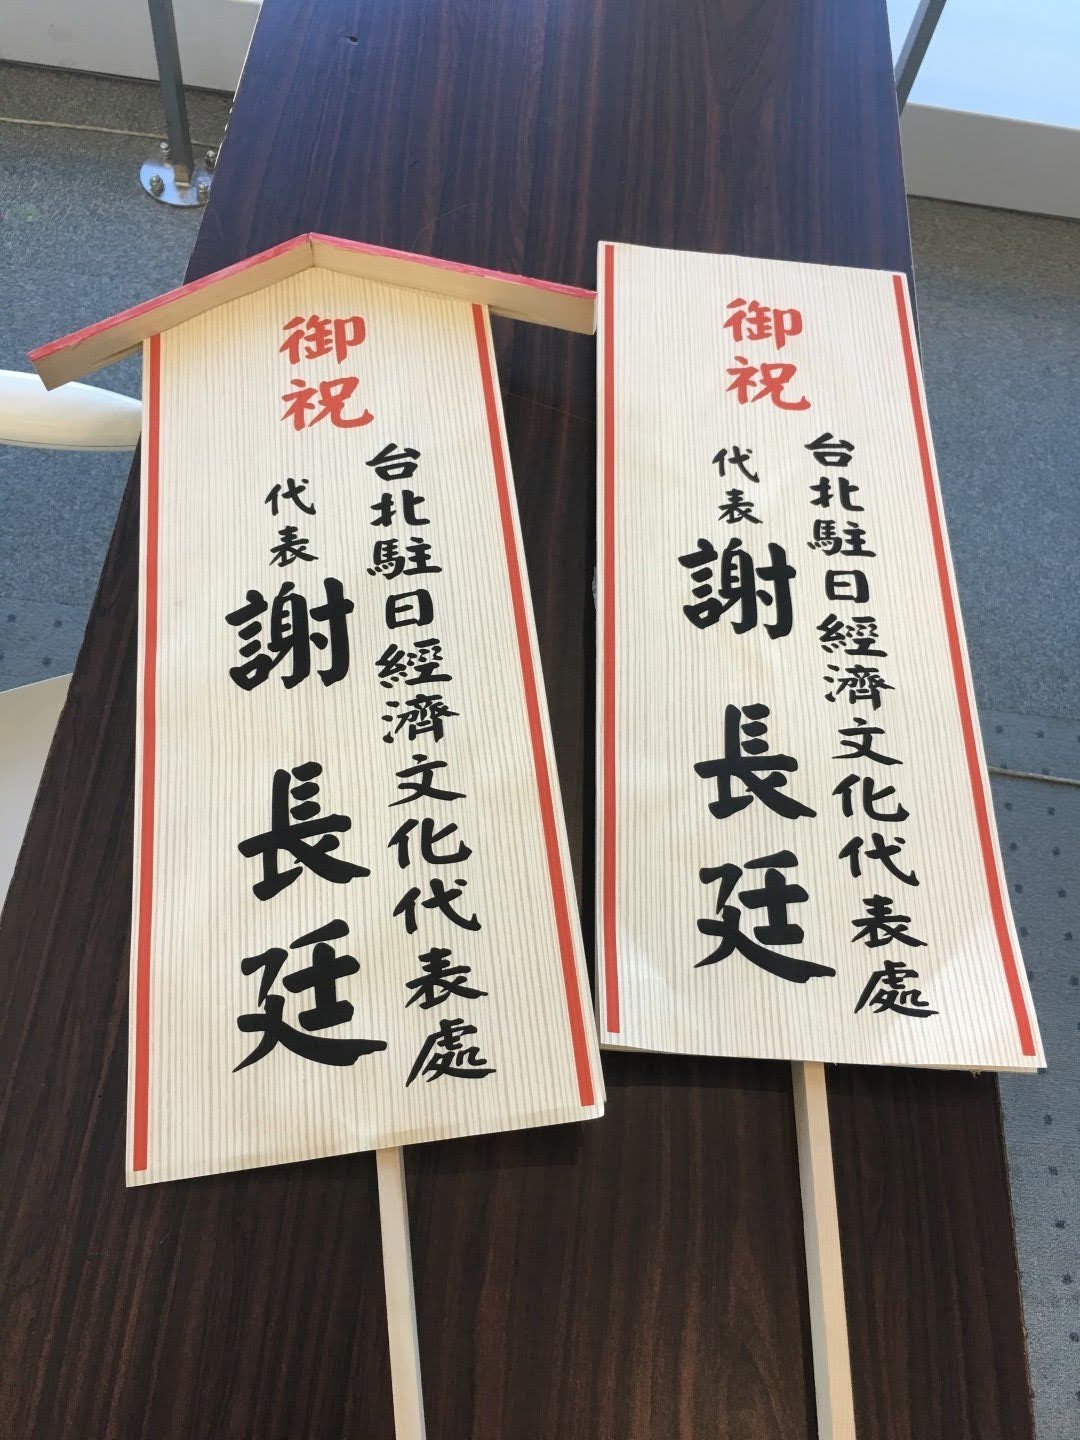 御祝
台北駐日經濟文化代表處
代表 謝長廷
御祝
台北駐日經濟文化代表處
代表 謝長廷